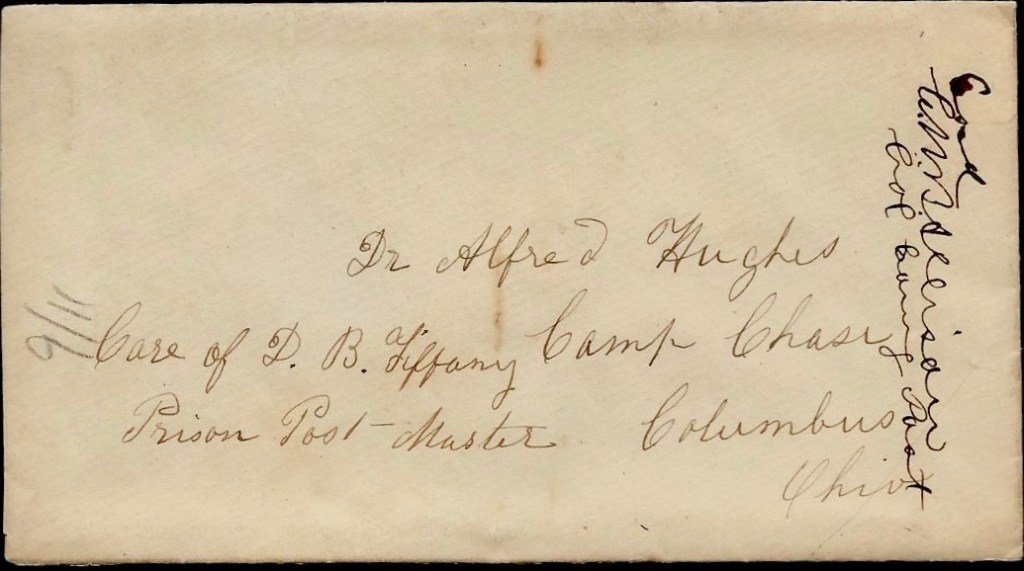 Dr Alfred Hughes
Care of D. B. Tiffany Camp Chase
Prison Post-Master Columbus
Ohio
9/11
Col Comdg Post